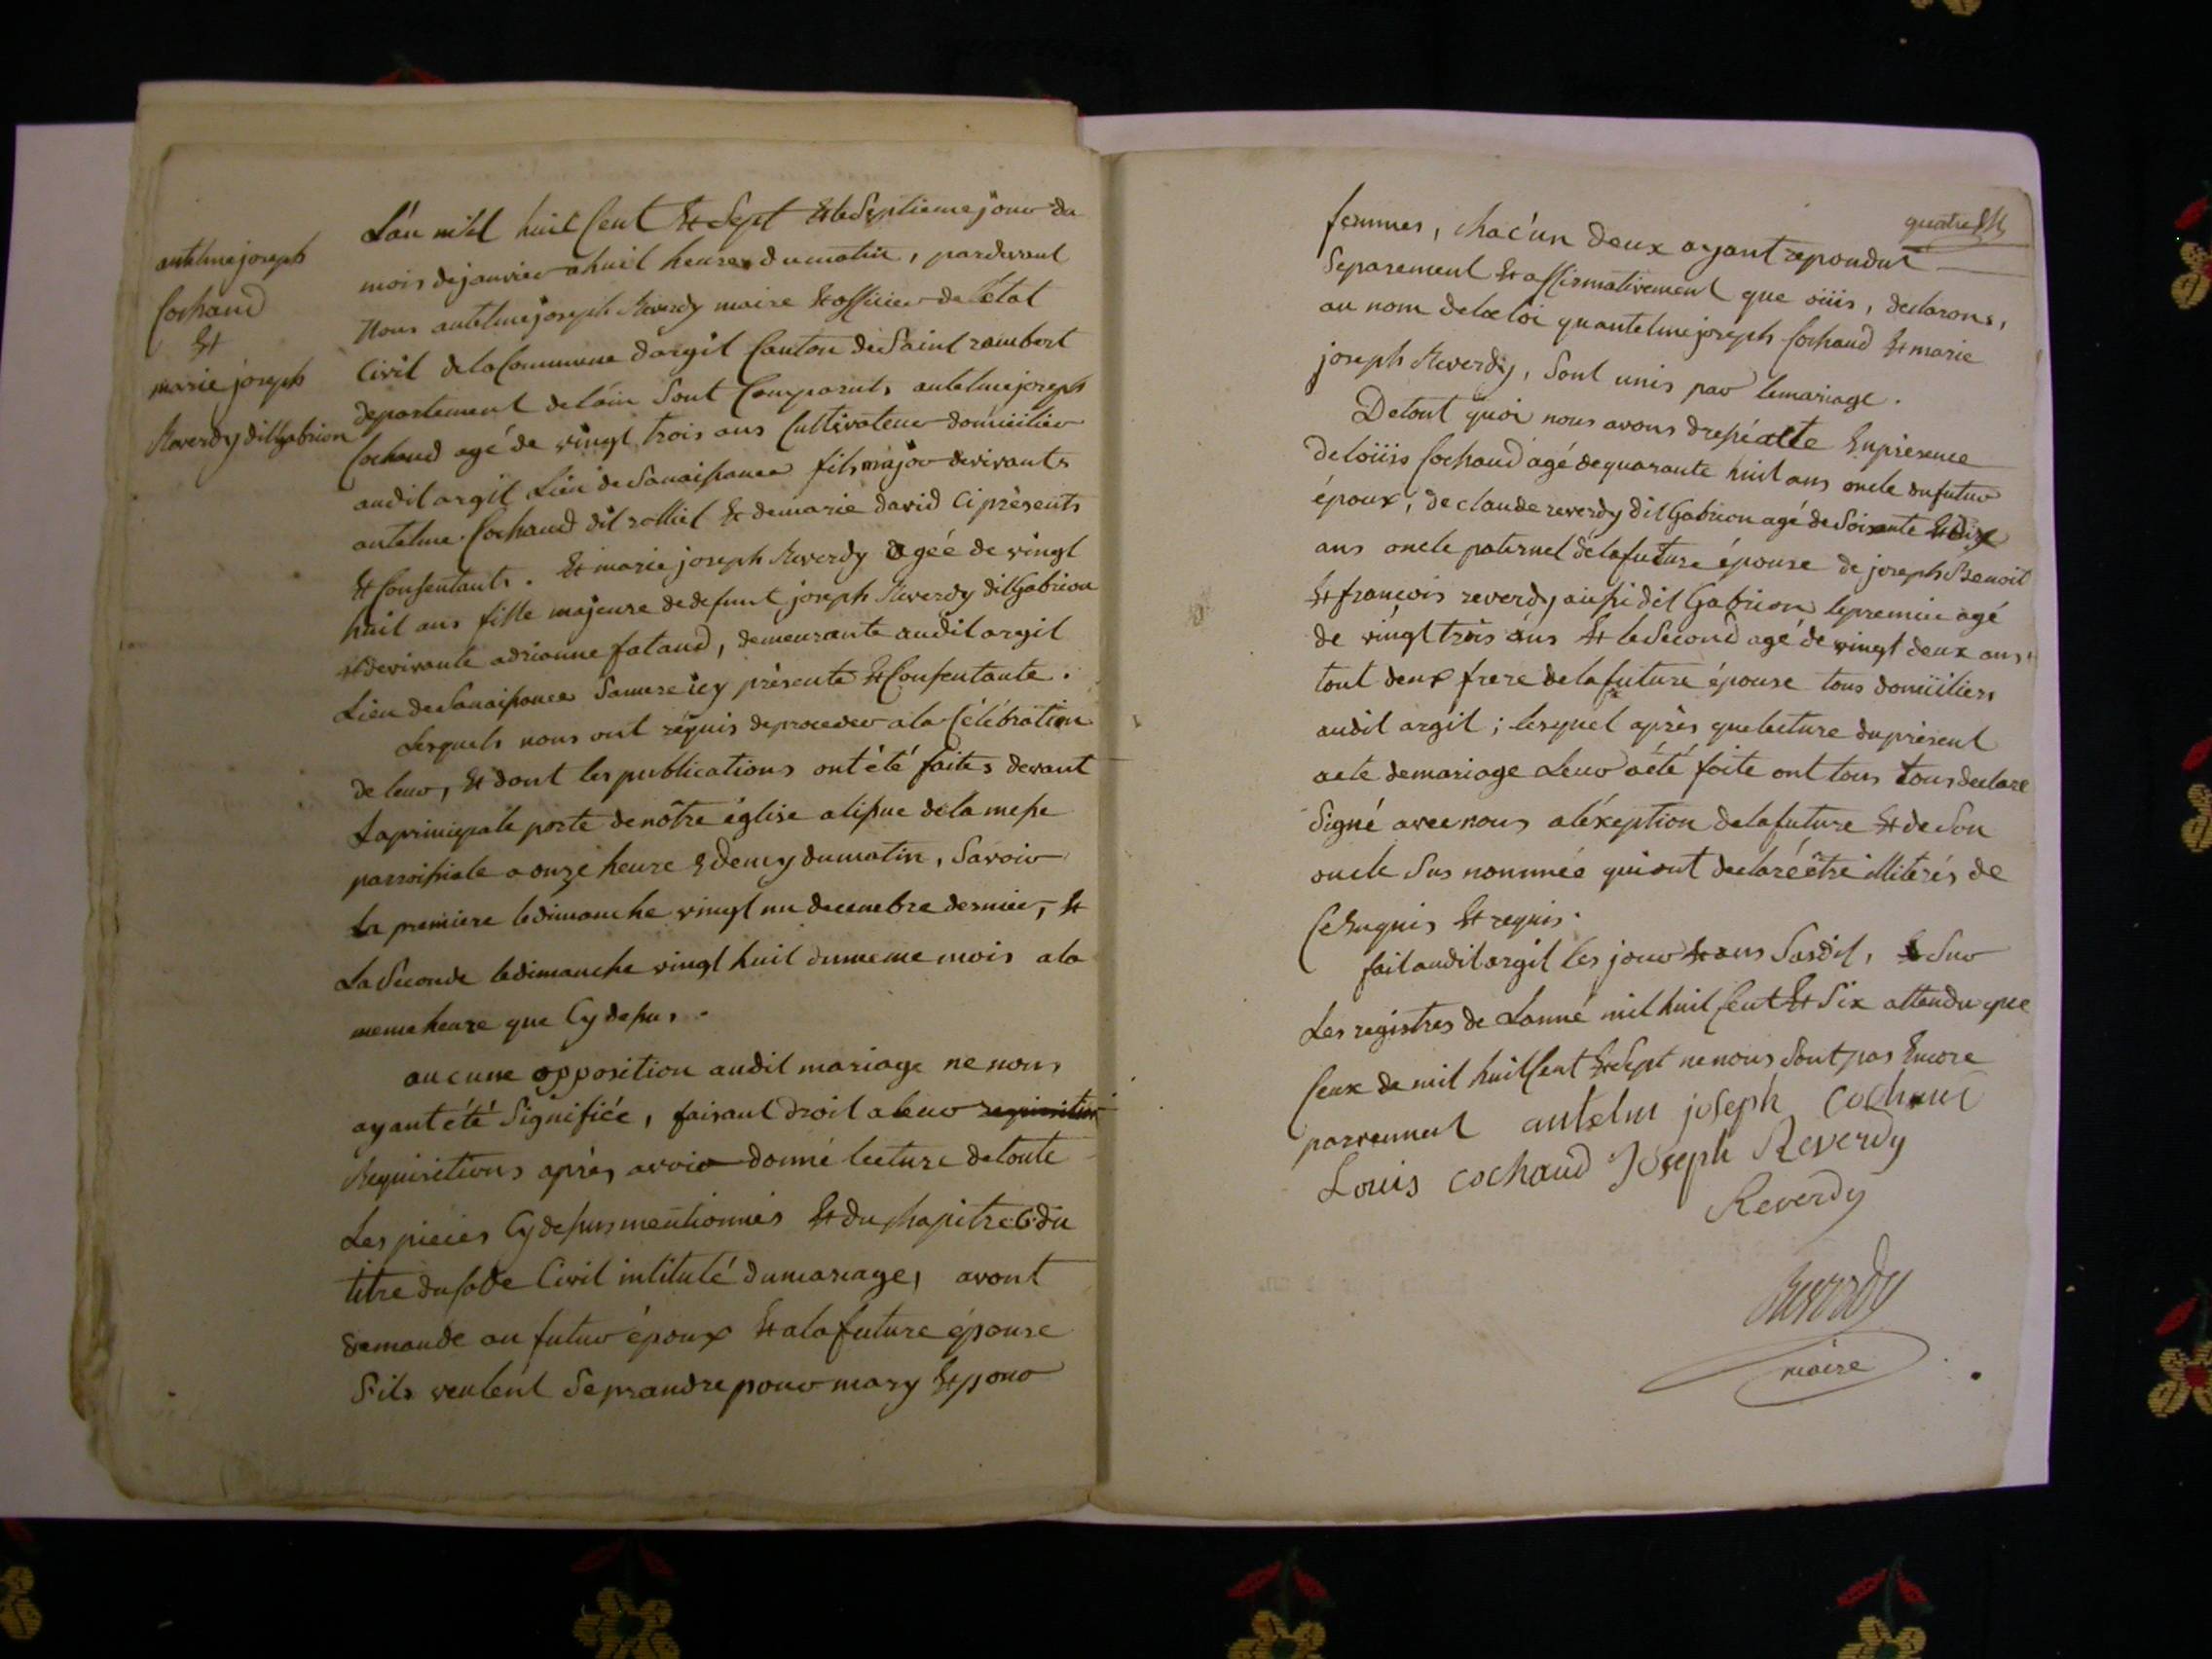 antelme joseph
Cochaud
Et
marie joseph
Reverdy dit Gabrion
L'an mil huit Cent Et Sept Et le Septieme jour du
mois de janvier a huit heures du matin, pardevant
Nous antelme joseph Reverdy maire Et officier de l'état
Civil de la Commune d'argit Canton de Saint rambert
departement de lain Sont Comparuts antelme joseph
Cochaud agé de vingt trois ans Cultivateur domicilier
audit argit Lieu de Sanaissance fils major de vivants
antelme Cochaud dit rolliet Et de marie david Ci présents
Et Consentants. Et marie joseph Reverdy agée de vingt
huit ans fille majeure de defunt joseph Reverdy dit Gabrion
et de vivante adrianne fataud, demeurante audit argit
Lieu de Sanaissance Samere icy présente Et Consentante.
Lesquels nous ont réquis de proceder a la Célébration
de leur, Et dont les publications ont été faites devant
La principale porte de nôtre église a lissue de la messe
parroissiale a onze heure & demy du matin, Savoir
La premiere le dimanche vingt un decembre dernier, Et
La Seconde le dimanche vingt huit du meme mois a la
meme heure que Cy dessus.
aucune opposition audit mariage ne nous
ayant été Signifiée, faisant droit a leur requisition
Requisitions après avoir donné lecture de toute
Les pieces Cy dessus mentionnés Et du chapitre 6 du
titre du Code Civil intitulé du mariage, avont
demande au futur époux Et a la future épouse
S'ils veulent Se prandre pour mary Et pour
quatre
femmes, chac'un deux ayant repondut
Separement Et affirmativement que oüis, declarons,
au nom de la loi qu antelme joseph Cochaud Et marie
joseph Reverdy, Sont unis par le mariage.
De tout quoi nous avons dressé acte En présence
de loüis Cochaud agé de quarante huit ans oncle du futur
époux, de claude reverdy dit Gabrion agé de Soixante Et dix
ans oncle paternel de la future épouse de joseph Benoit
Et françois reverdy aussi dit Gabrion le premier agé
de vingt trois ans Et le Second agé de vingt deux ans,
tout deux frere de la future épouse tous domiciliers
audit argit; lesquel après que lecture du présent
acte de mariage Leur a été faite ont tous tous declare
Signé avec nous a léxeption de la future Et de Son
oncle Sus nommée qui ont declaré être illiterés de
Ce Enquis Et requis.
fait audit argit les jour Et ans Susdit, Sur
Les registres de Lanné mil huit Cent Et Six attendu que
Ceux de mil huit Cent Et Sept ne nous Sont pas Encore
parvenent antelm joseph Cochaud
Louis cochaud Joseph Reverdy
Reverdy
Reverdy
maire